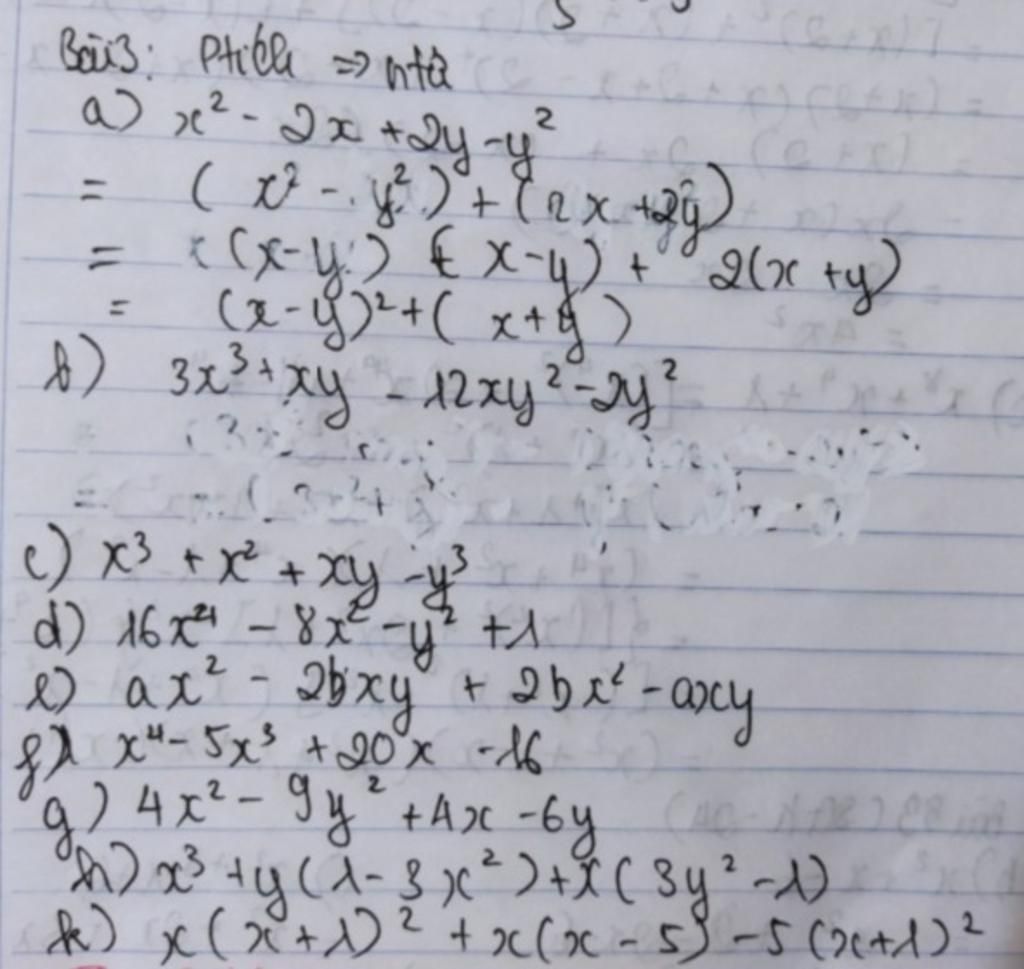 Bài 3: Ptích => ntử
a) x² - 2x + 2y - y²
= (x² - y²) + (2x + 2y)
= (x - y) (x - y) + 2(x + y)
= (x - y)² + (x + y)
b) 3x³ + xy - 12xy² - 2y²
c) x³ + x² + xy - y³
d) 16x⁴ - 8x² - y² + 1
e) ax² - 2bxy + 2bx² - axy
f) x⁴ - 5x³ + 20x - 16
g) 4x² - 9y² + 4x - 6y
h) x³ + y(1 - 3x²) + x(3y² - 1)
k) x(x + 1)² + x(x - 5) - 5(x + 1)²